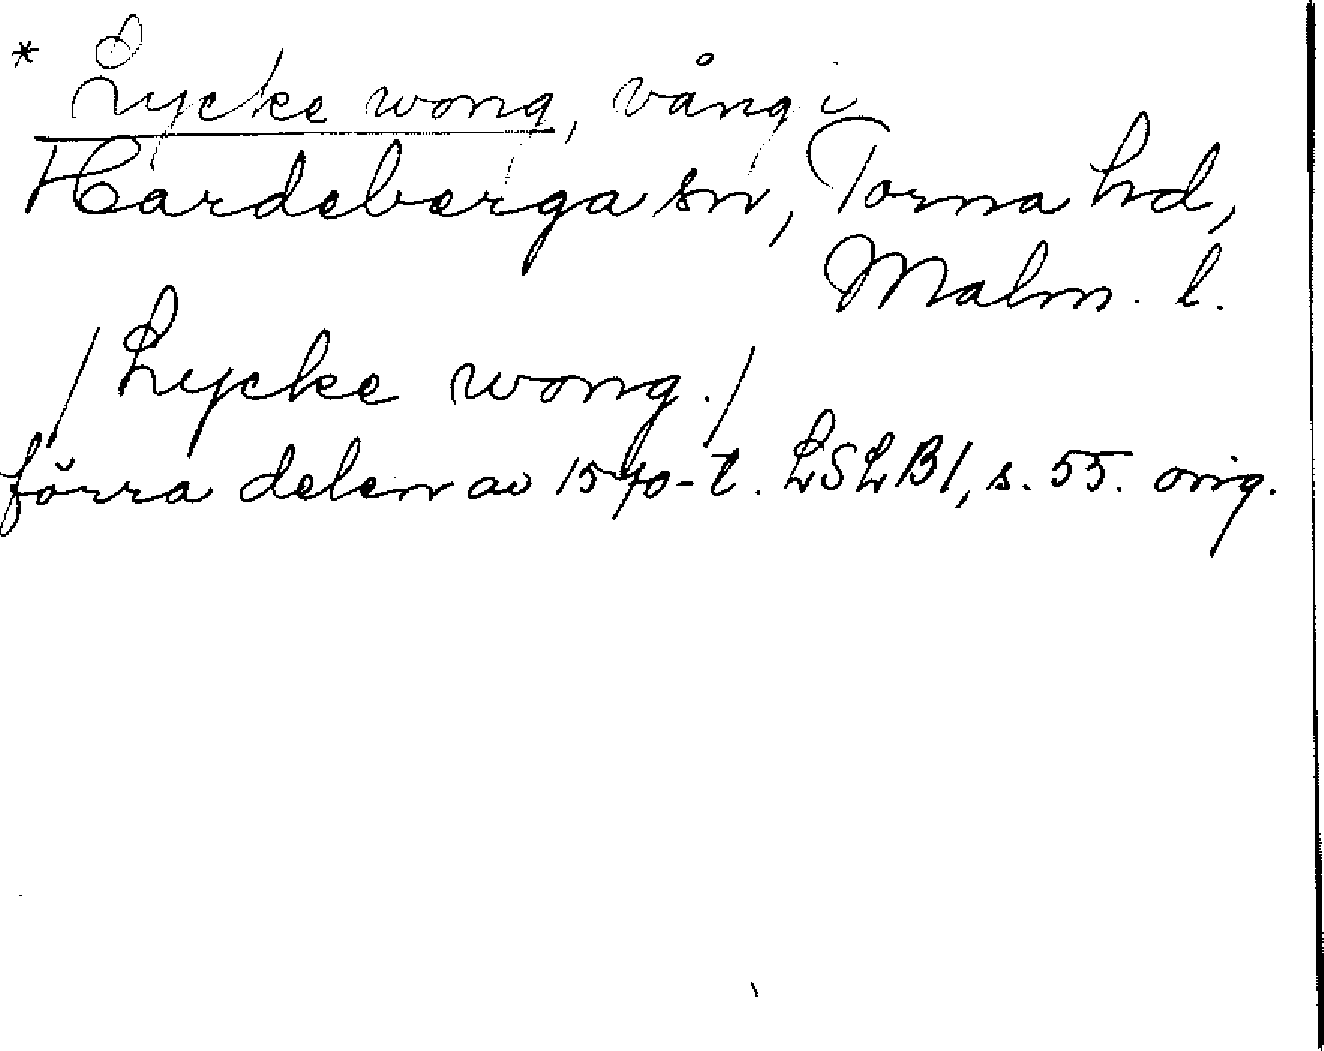 * Lycke wong, vång i
Hardeberga sn, Torna hd,
Malm. l.
/Lycke wong./
förra delen av 1570-t. LSLB1, s. 55. orig.